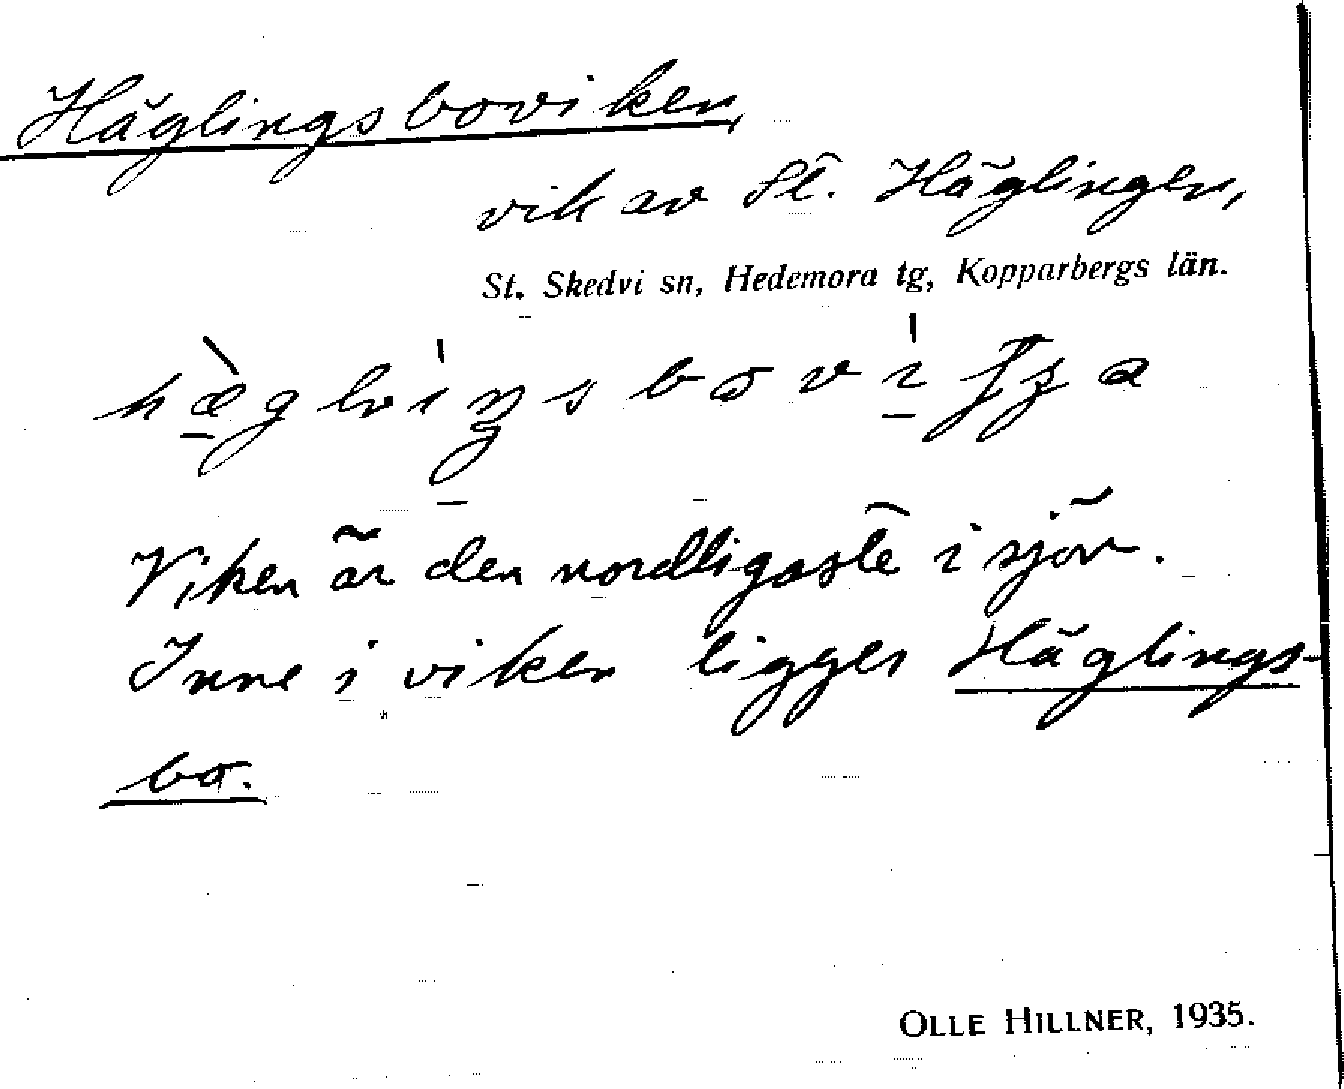 Häglingsboviken,
vik av St. Häglingen,
St. Skedvi sn, Hedemora tg, Kopparbergs län.
Viken är den nordligaste i sjön.
Inne i viken ligger Häglings-
bo.
OLLE HILLNER, 1935.